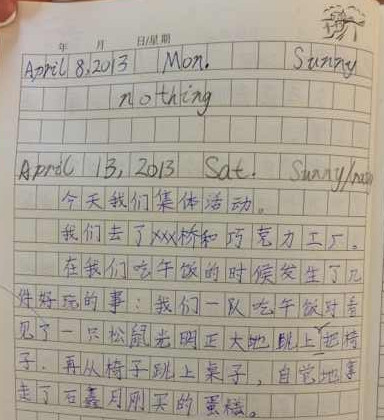 年 月 日/星期
April 8,2013 Mon. Sunny
nothing
April 13, 2013 Sat. Sunny/
今天我们集体活动。
我们去了xxx桥和巧克力工厂。
在我们吃午饭的时候发生了几
件好玩的事:我们一队吃午饭时看
见了一只松鼠光明正大地跳上把椅
子,再从椅子跳上桌子,自觉地拿
走了石鑫月刚买的蛋糕。